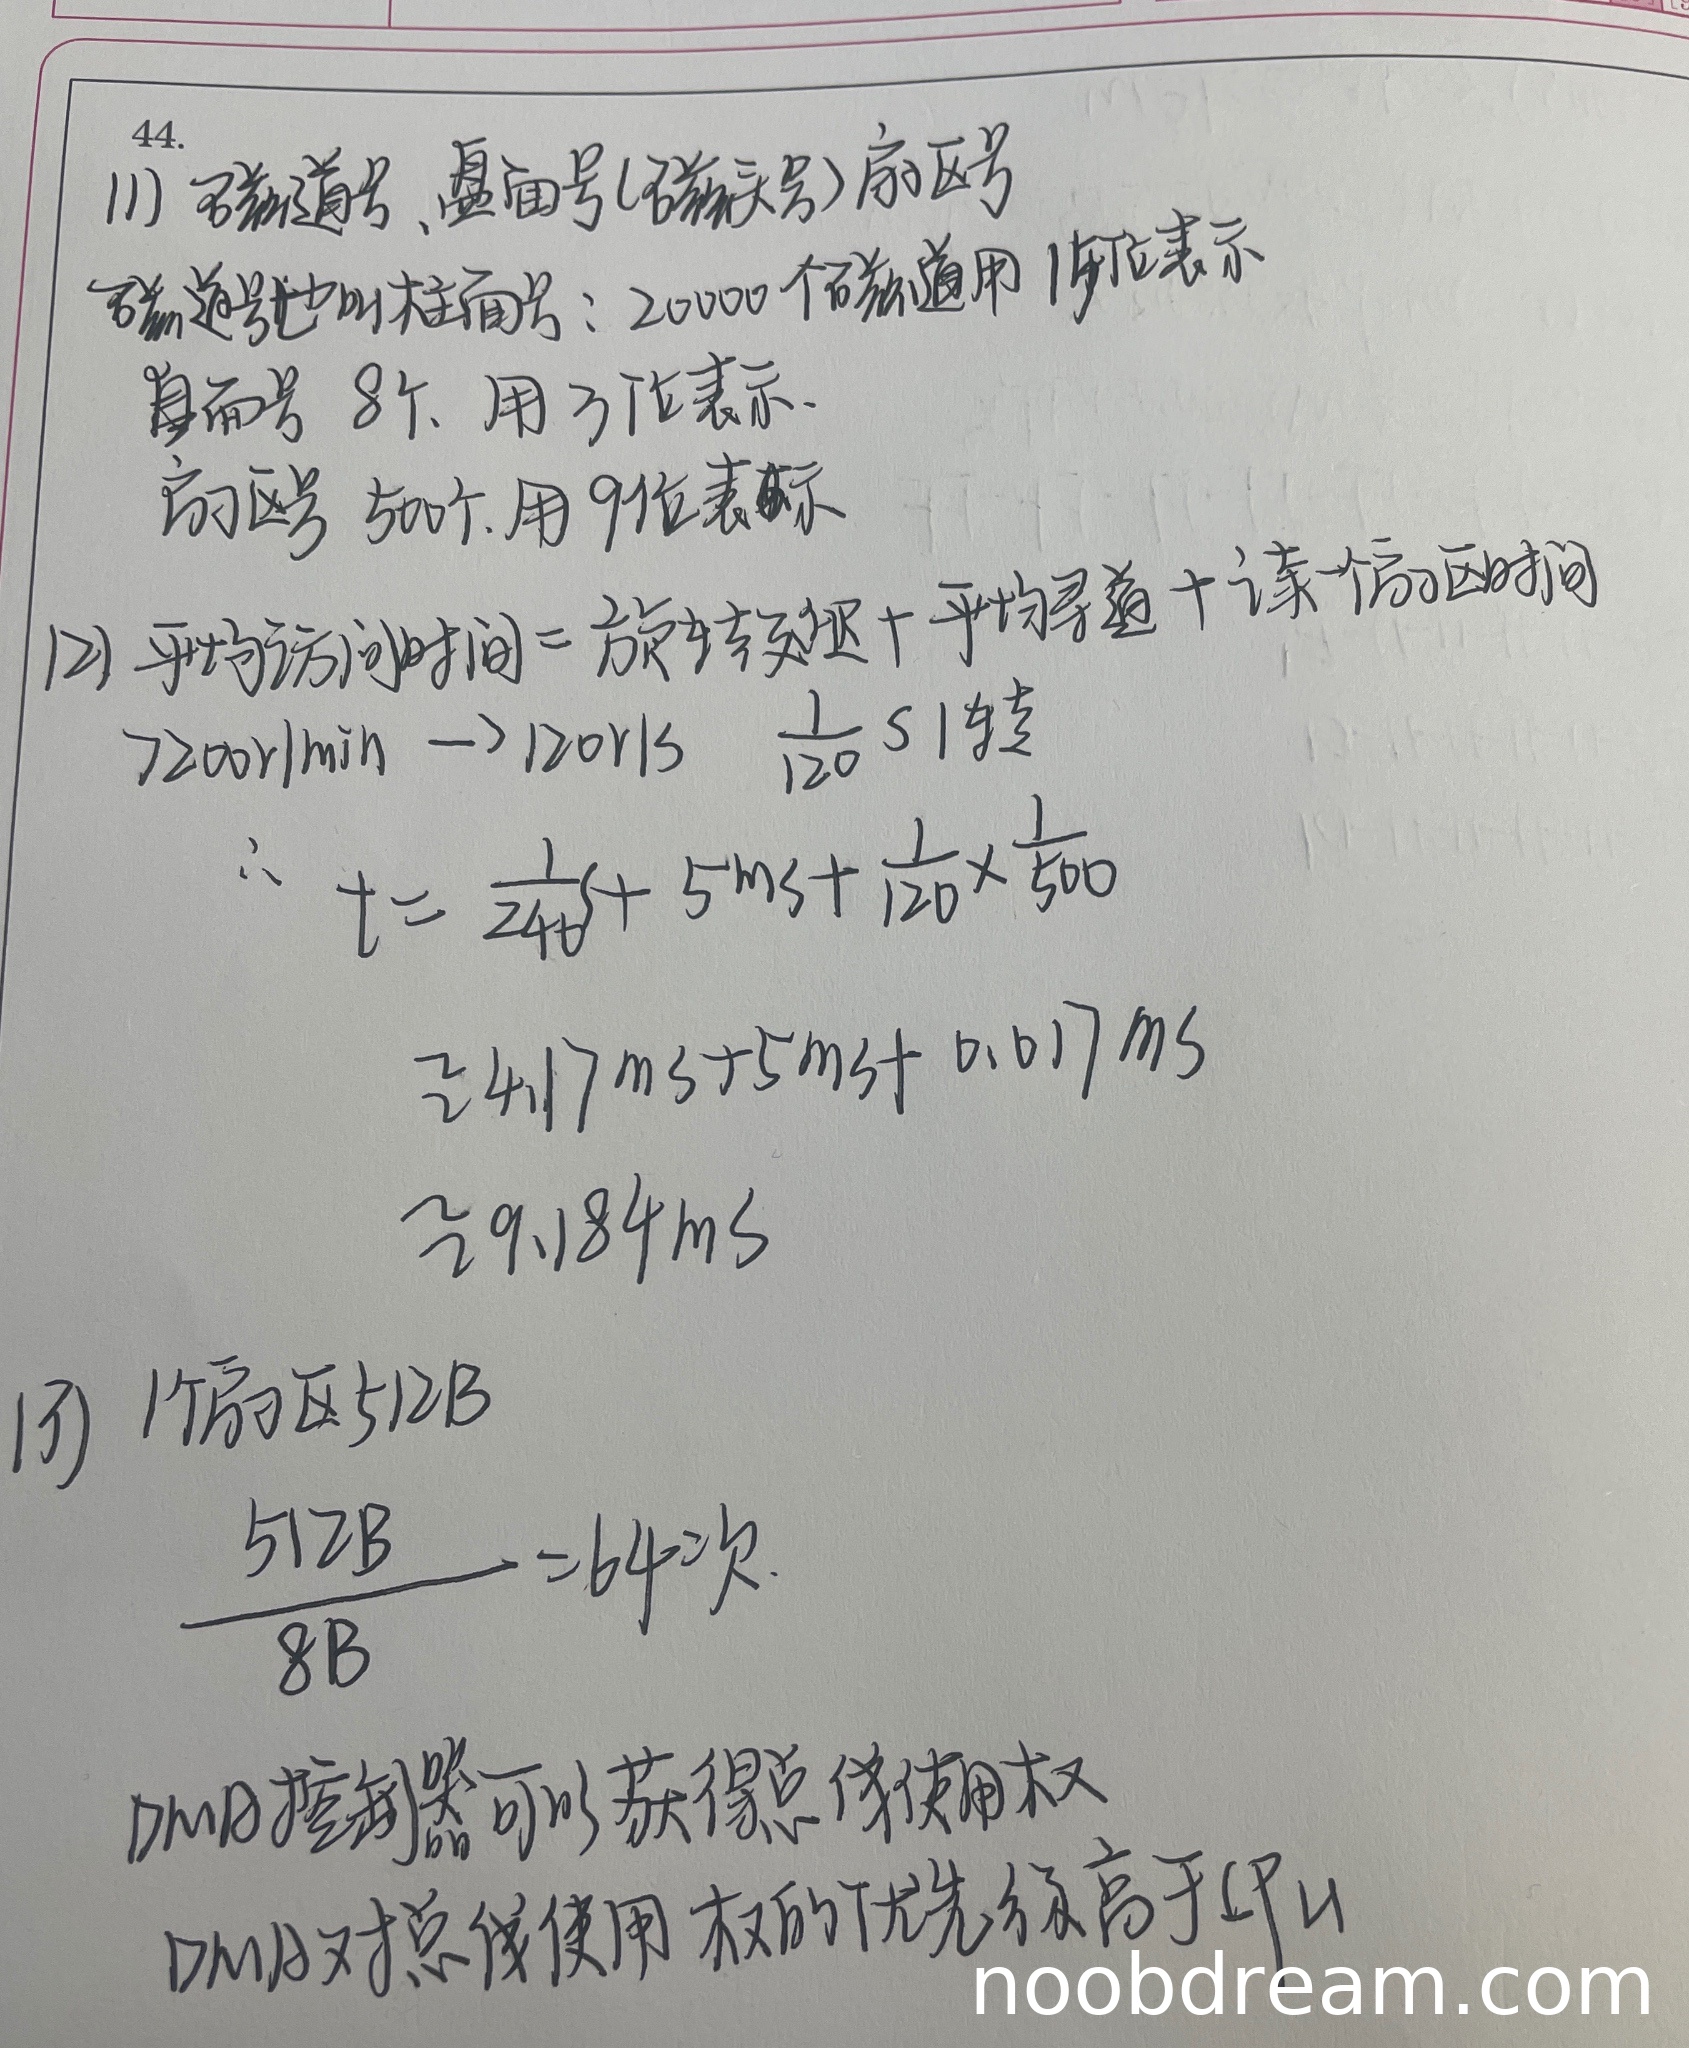 44.
(1) 磁道号、盘面号(磁头号)扇区号
磁道号也叫柱面号：20000个磁道用15位表示
盘面号 8个、用3位表示.
扇区号 500个.用9位表示
(2) 平均访问时间=旋转延迟+平均寻道+读一个扇区时间
7200r/min → 120r/s 1/120 s 1转
∴ t= 1/240 s+ 5ms+ 1/120 × 1/500
≈4.17ms+5ms+ 0.017ms
≈9.184ms
(3) 1个扇区512B
512B/8B =64次.
DMA控制器可以获得总线使用权
DMA对总线使用权的优先级高于CPU
noobdream.com